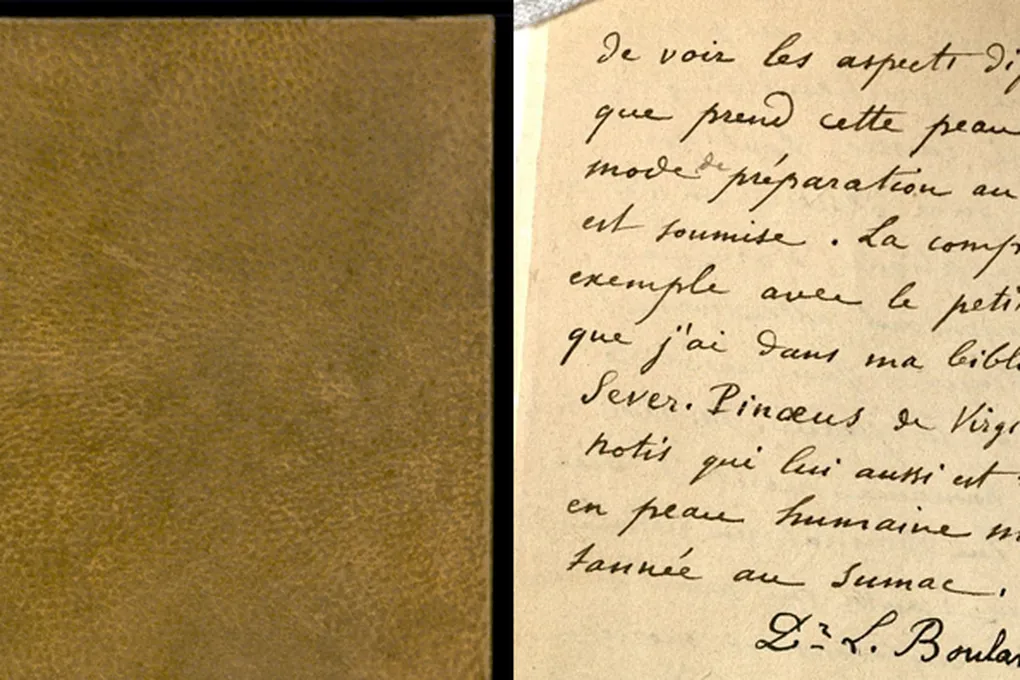 de voir les aspects
que prend cette peau
mode de préparation au
est soumise. La comp
exemple avec le peti
que j'ai dans ma bibl
Sever. Pinœus de Virgi
notis qui lui aussi est
en peau humaine
tannée au Sumac.
Dr L. Boulan